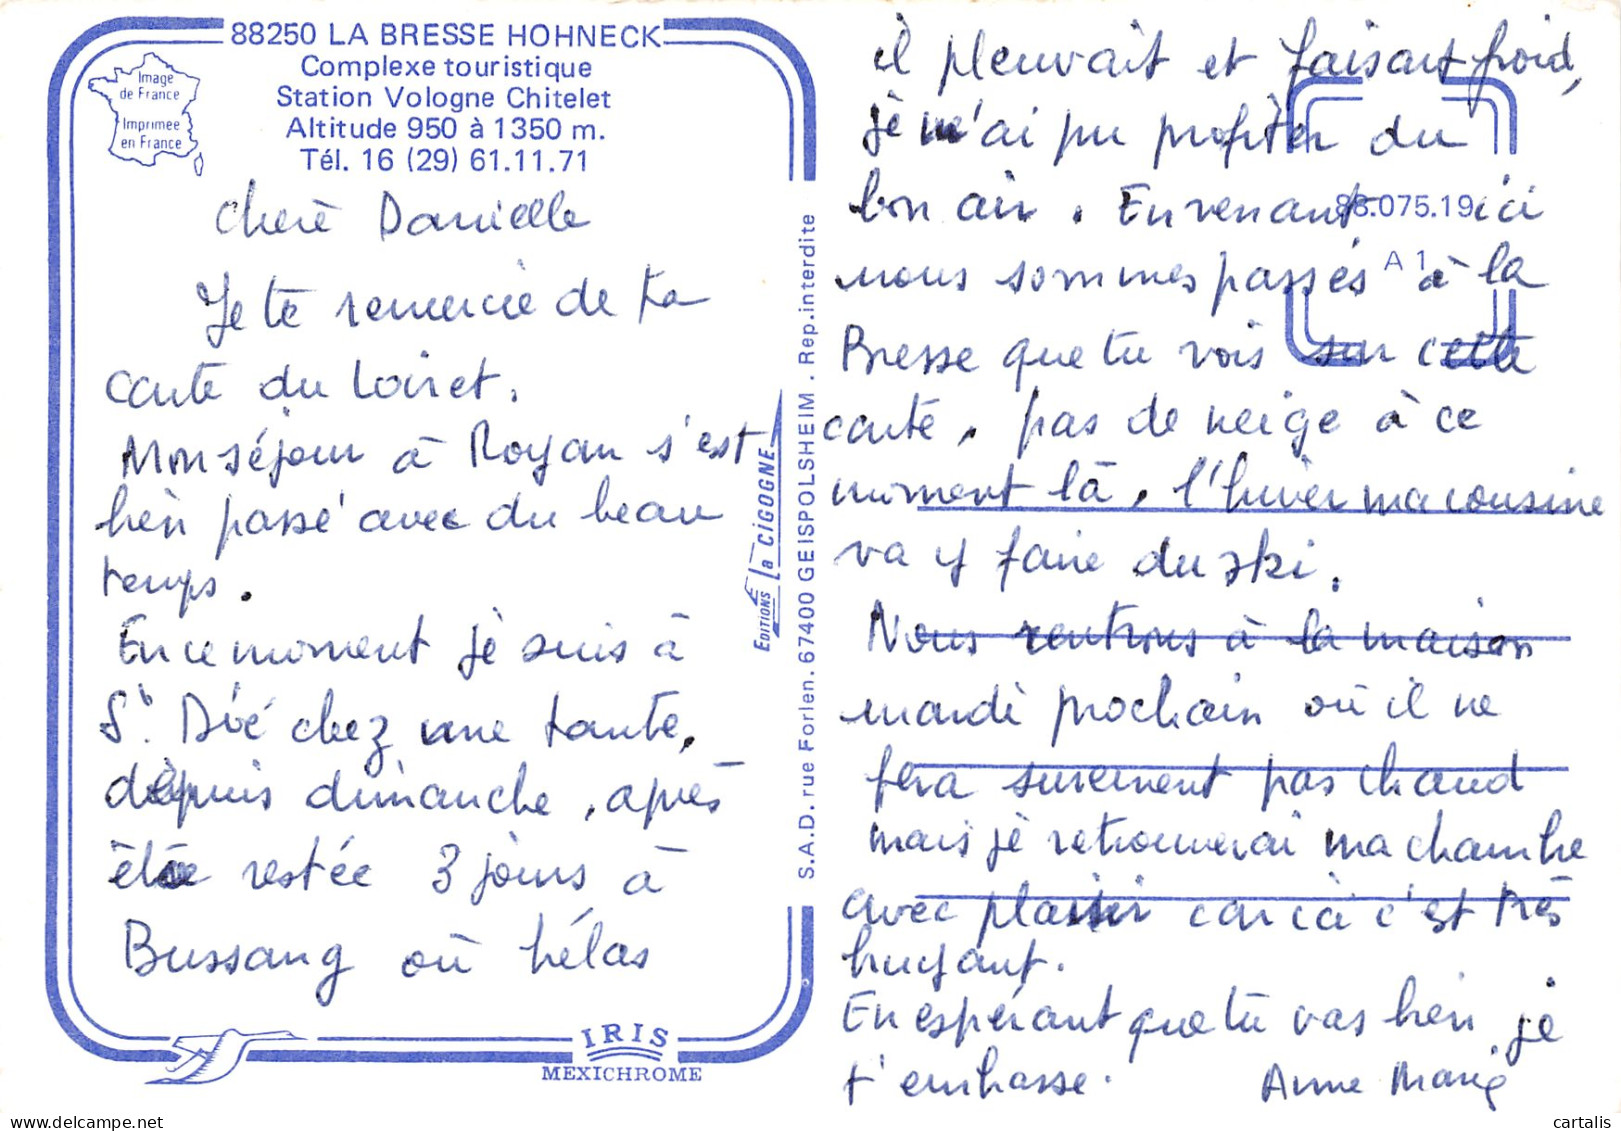 88250 LA BRESSE HOHNECK
Complexe touristique
Station Vologne Chitelet
Altitude 950 à 1350 m.
Tél. 16 (29) 61.11.71
Image
de France
Imprimée
en France
Chère Danielle
Je te remercie de ta
carte du Loiret.
Mon séjour à Royan s'est
bien passé avec du beau
temps.
En ce moment je suis à
St. Dié chez une tante,
depuis dimanche, après
être restée 3 jours à
Bussang où hélas
EDITIONS la CIGOGNE
S.A.D. rue Forlen. 67400 GEISPOLSHEIM . Rep. interdite
IRIS
MEXICHROME
il pleuvait et faisait froid,
je n'ai pu profiter du
bon air. En venant ici
88.075.19
nous sommes passés à la
A 1
Bresse que tu vois sur cette
carte, pas de neige à ce
moment là, l'hiver ma cousine
va y faire du ski.
Nous rentrons à la maison
mardi prochain où il ne
fera surement pas chaud
mais je retrouverai ma chambre
avec plaisir car ici c'est très
bruyant.
En espérant que tu vas bien je
t'embrasse. Anne Marie
cartalis